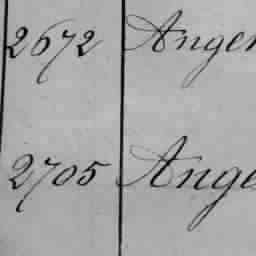 2672 Anger
2705 Ange